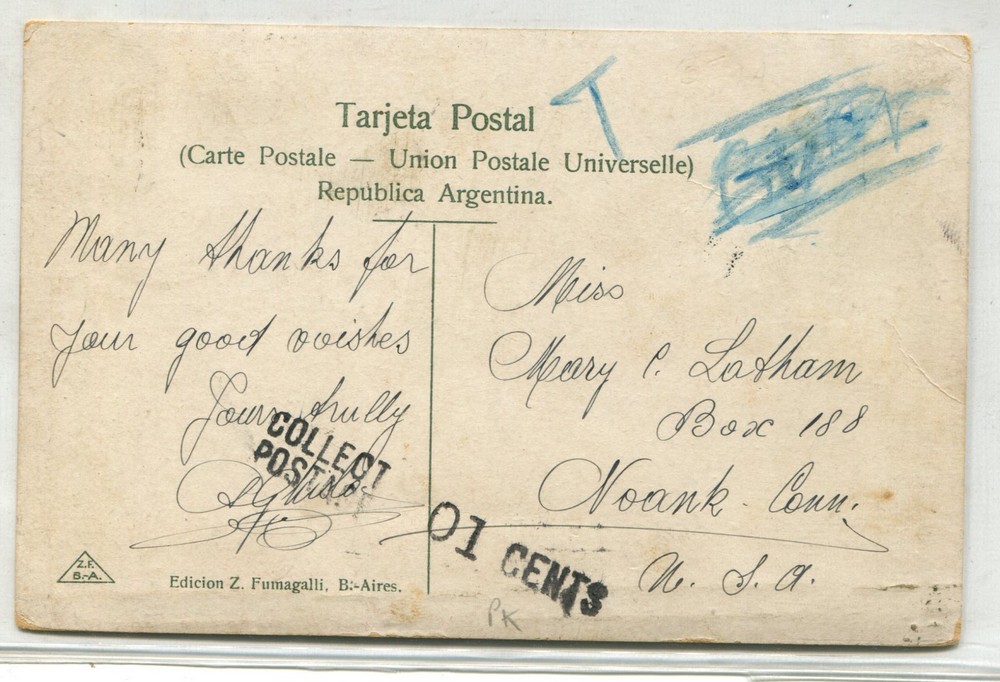 T
Tarjeta Postal
(Carte Postale — Union Postale Universelle)
República Argentina.
Many thanks for
your good wishes
Yours trully
COLLECT
Miss
Mary C. Latham
Box 188
Noank - Conn.
U. S. A.
01 CENTS
Z.F.
B.-A.
Edicion Z. Fumagalli, B:-Aires.
PK